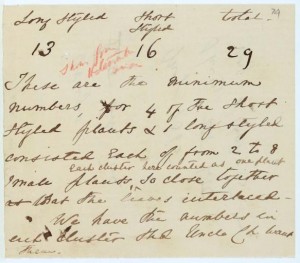 Long Styled Short Styled total. 29
13 16 29
These are the minimum
numbers, for 4 of the Short
Styled plants & 1 long styled
consisted each of from 2 to 8
Each cluster here counted as one plant
small plants so close together
that the leaves interlaced—
We have the numbers in
each cluster shd Uncle Ch. want
them.